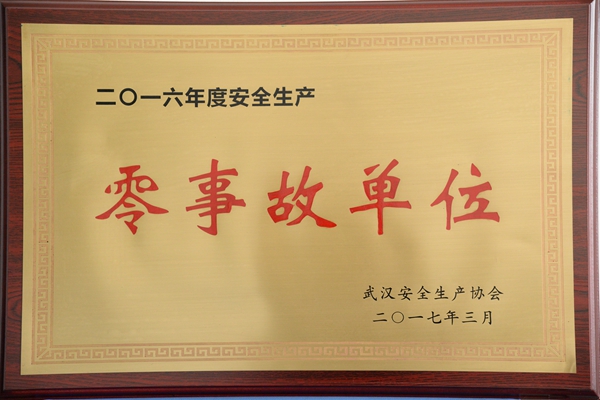 二〇一六年度安全生产
零事故单位
武汉安全生产协会
二〇一七年三月